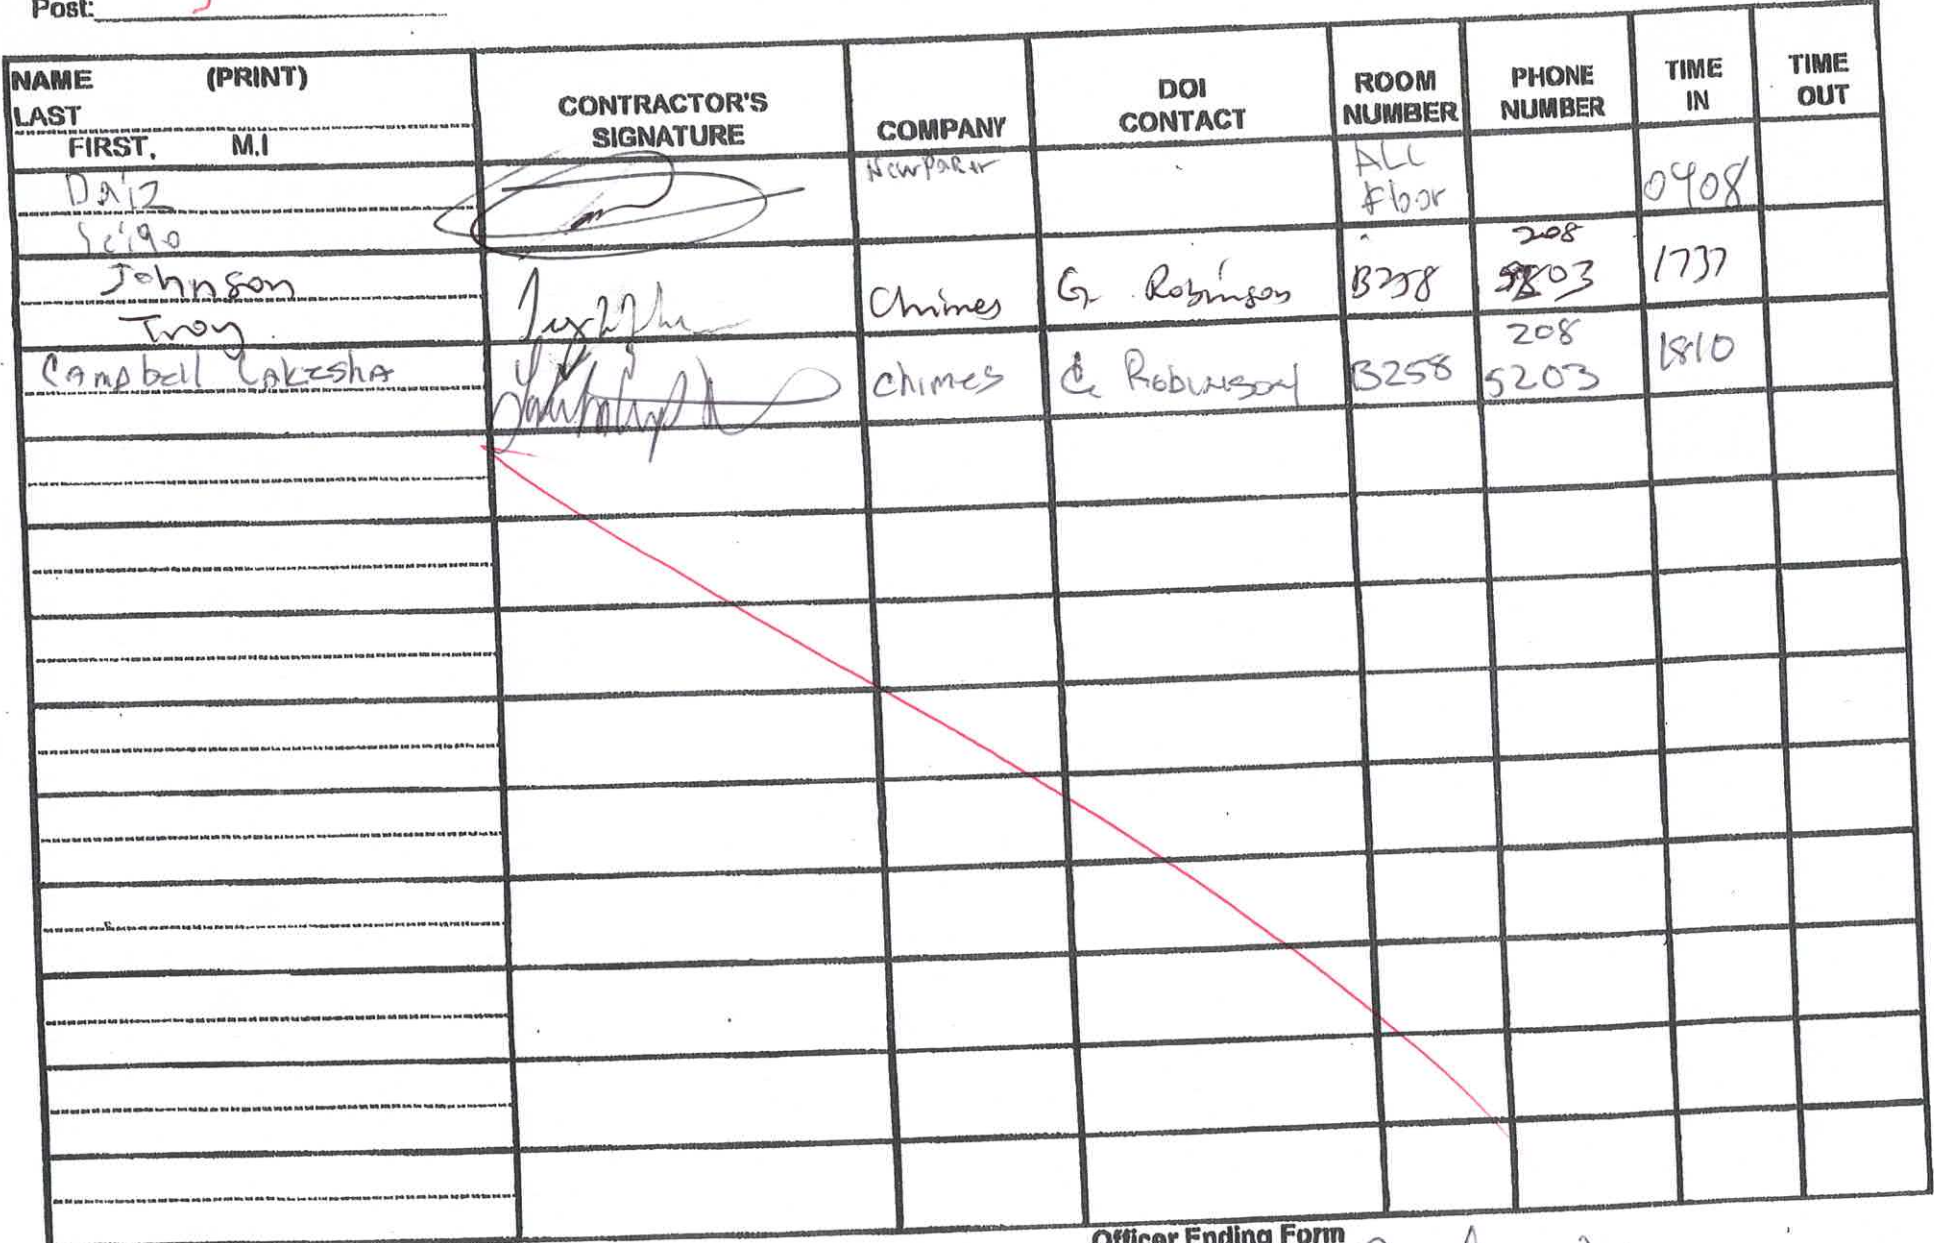 Post:
NAME (PRINT)
LAST
FIRST, M.I
CONTRACTOR'S
SIGNATURE
COMPANY
DOI
CONTACT
ROOM
NUMBER
PHONE
NUMBER
TIME
IN
TIME
OUT
Daiz
ALL
Floor
0908
Johnson
Troy
Chimes
G Robinson
B258
208
1737
Campbell Lakesha
chimes
Robinson
B258
208
5203
1810
Officer Ending Form